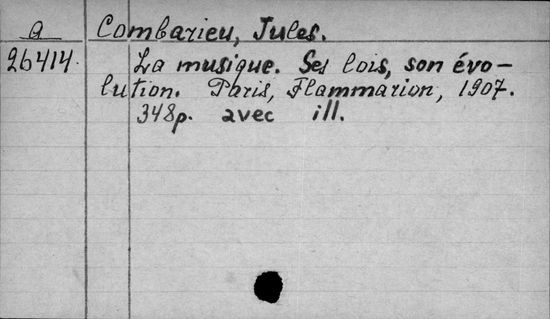 a Combarieu, Jules.
26414. La musique. Ses lois, son évo-
lution. Paris, Flammarion, 1907.
348p. avec ill.